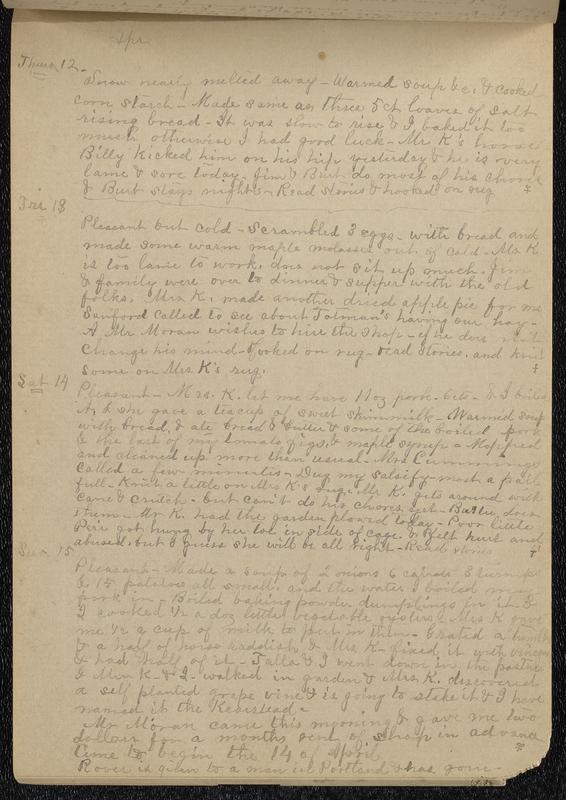 Apr
Thurs 12. Snow nearly melted away - Warmed soup &c. & cooked
corn starch - Made some as three 5ct loaves of salt
rising bread - It was slow to rise & I baked it too
much otherwise I had good luck - Mr K's horse
Billy kicked him on his hip yesterday & he is very
lame & sore today. Jim & Burt do most of his chores
& Burt stays nights - Read stories & hooked on rug
Fri 13 Pleasant but cold - Scrambled 3 eggs - with bread and
made some warm maple molasses out of cold - Mr K
is too lame to work, does not sit up much. Jim
& family were over to dinner & supper with the old
folks. Mrs K. made another dried apple pie for me
Sanford called to see about Tolman's having our hay -
A Mr Moran wishes to hire the shop - if he does not
change his mind - Hooked on rug - read stories. and knit
some on Mrs K's rug.
Sat 14 Pleasant - Mrs. K. let me have 11 oz pork - & I boiled
it, & she gave a teacup of sweet skimmilk - Warmed soup
with bread, & ate bread & butter & some of the boiled pork
& the last of my tomato figs, & maple syrup - Mopped
and cleaned up more than usual - Mrs Cummings
called a few minutes - Dug my salsify - most a pail
full - Knit a little on Mrs K's rug. Mr K. gets around with
cane & crutch - but can't do his chores yet - does
them - Mr K. had the garden plowed today - Poor little
got hung by her toe in side of cage & felt hurt and
abused, but I guess she will be all right - Read stories
Sun 15 Pleasant - Made a soup of 2 onions 6 carrots 3 turnips
& 15 potatoes all small. and the water I boiled my
pork in - Boiled baking powder dumplings in it &
I cooked 1/2 a doz little vegetable oysters - Mrs K gave
me 1/2 a cup of milk to put in them - Grated a
& a half of horse raddish & Mrs K - fixed it with vinegar
& had half of it - & I went down in the pasture
& Mrs K & I - walked in garden & Mrs K. discovered
a self planted grape vine & is going to stake it & I have
named it the
Mr Moran came this morning & gave me two
dollars for a months rent of shop in advance
time to begin the 14 of April
Rover is given to a man in Portland & has gone -